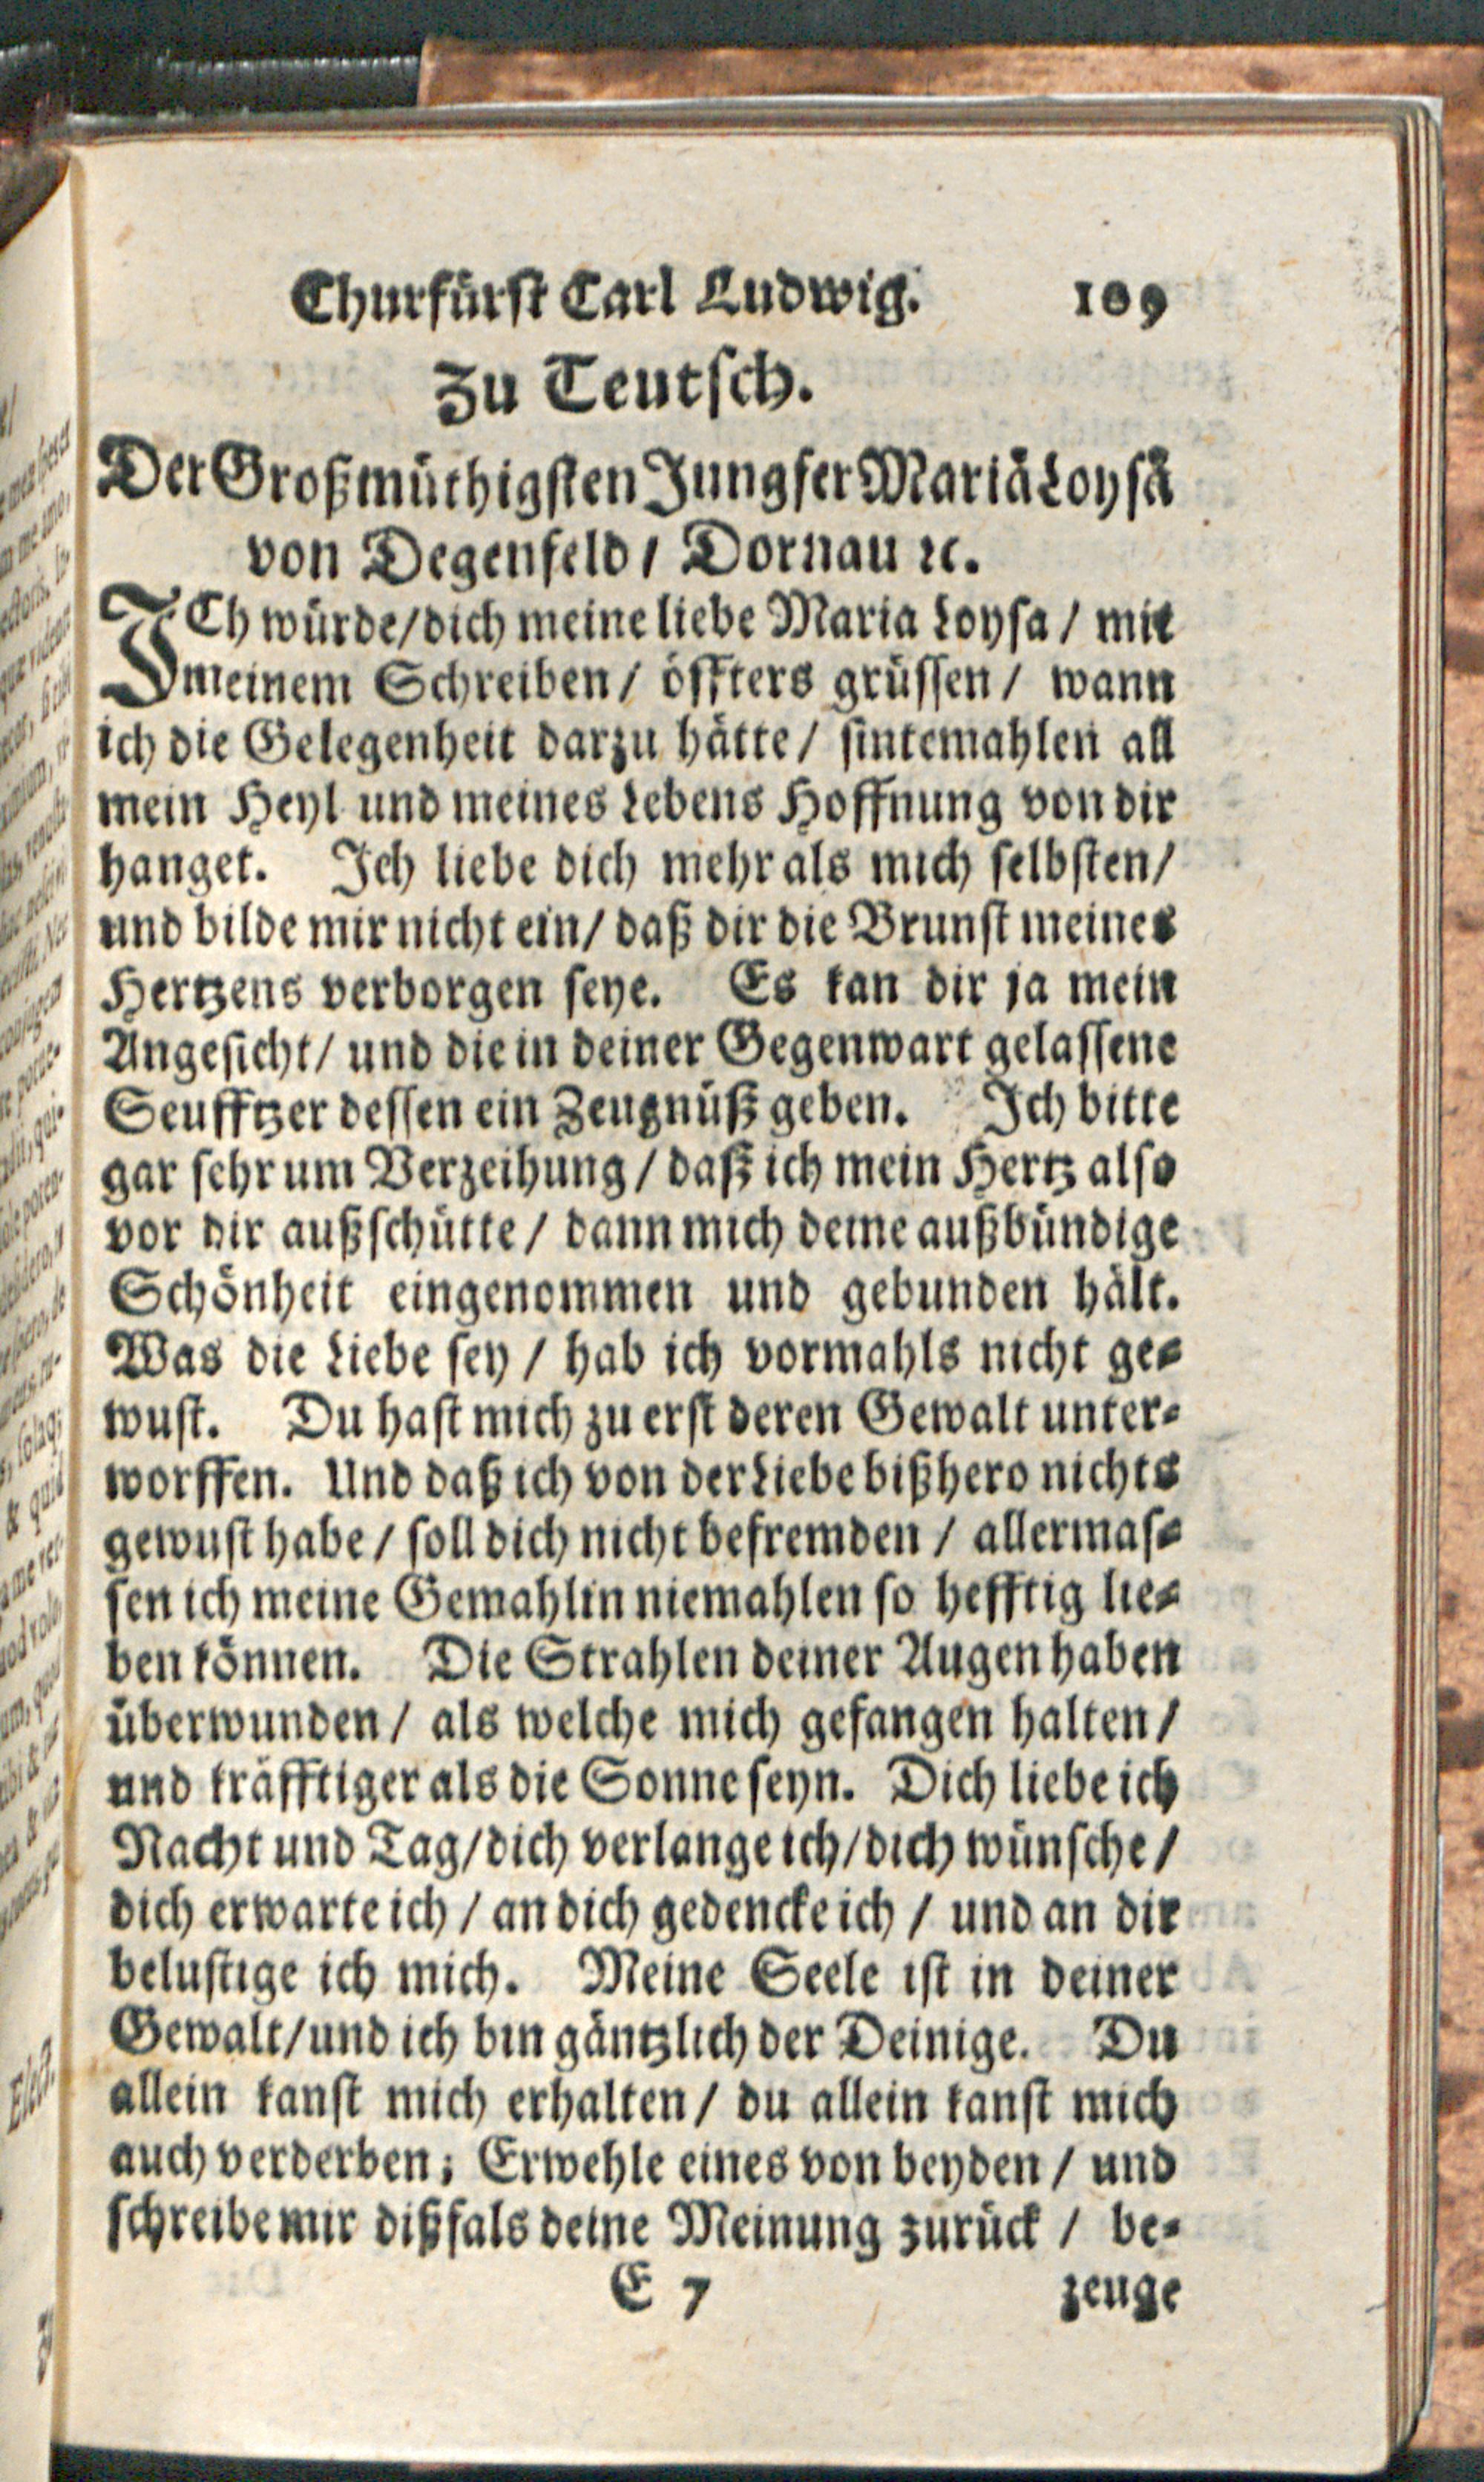 Churfürst Carl Ludwig. 109
Zu Teutsch.
Der Großmüthigsten Jungfer Mariä Loysä
von Degenfeld / Dornau ꝛc.
ICh würde / dich meine liebe Maria Loysa / mit
meinem Schreiben / öffters grüssen / wann
ich die Gelegenheit darzu hätte / sintemahlen all
mein Heyl und meines Lebens Hoffnung von dir
hanget. Ich liebe dich mehr als mich selbsten /
und bilde mir nicht ein / daß dir die Brunst meines
Hertzens verborgen seye. Es kan dir ja mein
Angesicht / und die in deiner Gegenwart gelassene
Seufftzer dessen ein Zeugnüß geben. Ich bitte
gar sehr um Verzeihung / daß ich mein Hertz also
vor dir außschütte / dann mich deine außbündige
Schönheit eingenommen und gebunden hält.
Was die Liebe sey / hab ich vormahls nicht ge-
wust. Du hast mich zu erst deren Gewalt unter-
worffen. Und daß ich von der Liebe bißhero nichts
gewust habe / soll dich nicht befremden / allermas-
sen ich meine Gemahlin niemahlen so hefftig lie-
ben können. Die Strahlen deiner Augen haben
überwunden / als welche mich gefangen halten /
und kräfftiger als die Sonne seyn. Dich liebe ich
Nacht und Tag / dich verlange ich / dich wünsche /
dich erwarte ich / an dich gedencke ich / und an dir
belustige ich mich. Meine Seele ist in deiner
Gewalt / und ich bin gäntzlich der Deinige. Du
allein kanst mich erhalten / du allein kanst mich
auch verderben; Erwehle eines von beyden / und
schreibe mir dißfals deine Meinung zurück / be-
E 7 zeuge